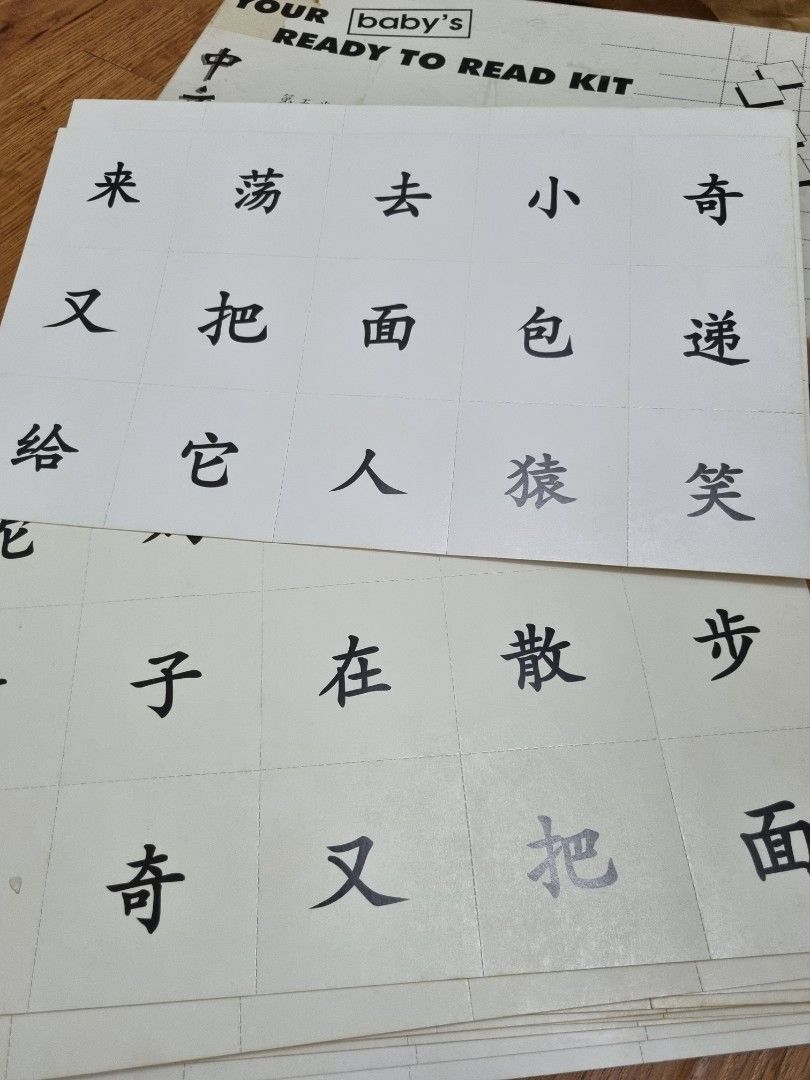 YOUR baby's
READY TO READ KIT
中
第五
来 荡 去 小 奇
又 把 面 包 递
给 它 人 猿 笑
子 在 散 步
奇 又 把 面